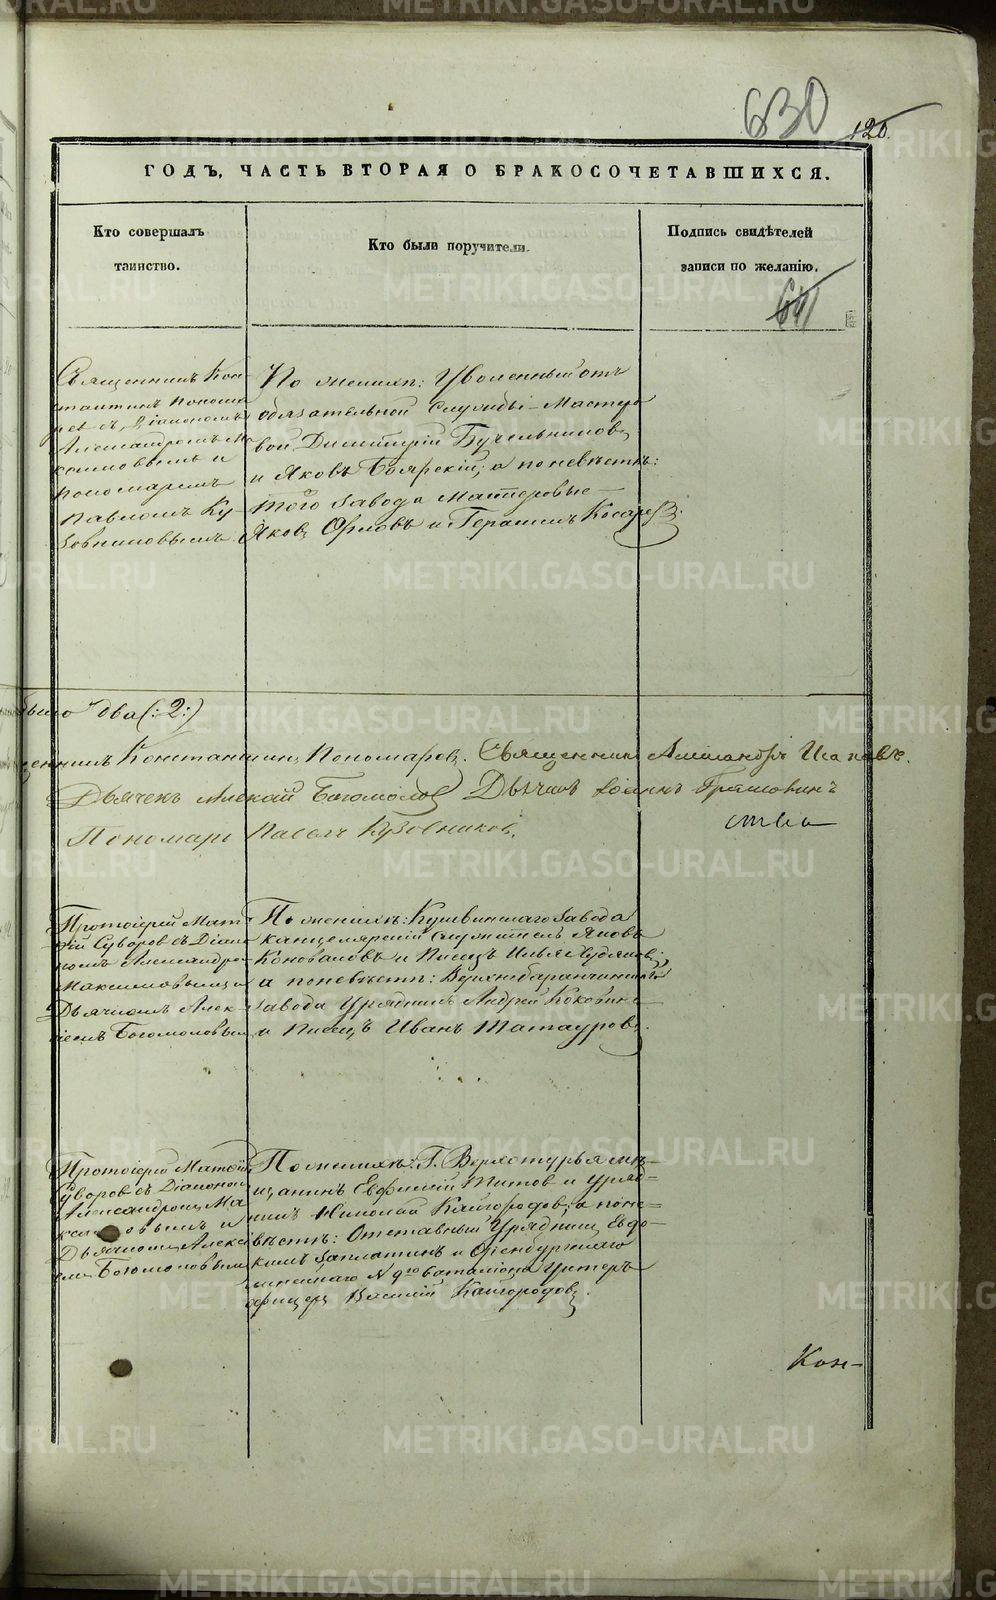 630
120.
ГОДЪ, ЧАСТЬ ВТОРАЯ О БРАКОСОЧЕТАВШИХСЯ.
Кто совершалъ
таинство.
Кто были поручители.
Подпись свидѣтелей
записи по желанію.
Священникъ Кон-
стантинъ Понома
ревъ съ Діакономъ
Александромъ Ма
ксимовымъ и
пономаремъ
Павломъ Ку
зовниковымъ.
По женихѣ: Уволенный отъ
обязательной службы Мастеро
вой Димитрій Бучельниковъ
и Яковъ Боярскій; а по невѣстѣ:
того завода Мастеровые
Яковъ Орловъ и Герасимъ Косаревъ.
было два (:2:)
Константинъ Пономаревъ. Священникъ Александръ
Дьячекъ Алексѣй Богомоловъ Дьячекъ Іоаннъ
Пономарь Павелъ Кузовниковъ.
ства
Протоіерей Мат-
ѳій Суворовъ съ Діако
номъ Александро
Максимовымъ и
Дьячкомъ Алек-
сіемъ Богомоловым
По женихѣ: Кушвинскаго завода
канцелярскій служитель Яковъ
Коноваловъ и Писецъ Илья
а по невѣстѣ: Верхнебаранчинскаго
завода Урядникъ Андрей Коковинъ
и Писецъ Иванъ Татауровъ.
Протоіерей Матѳій
Суворовъ съ Діакономъ
Александромъ Ма
ксимовымъ и
Дьячкомъ Алексі
емъ Богомоловым
По женихѣ: Г. Верхотурья мѣ-
щанинъ Евфимій Титовъ и Уряд-
никъ Николай Кайгородовъ; а по не-
вѣстѣ: Отставный Урядникъ Евдо-
кимъ Заплатинъ и Оренбургскаго
линейнаго N 9го баталіона Унтеръ
офицеръ Василій Кайгородовъ.
Кон-
METRIKI.GASO-URAL.RU